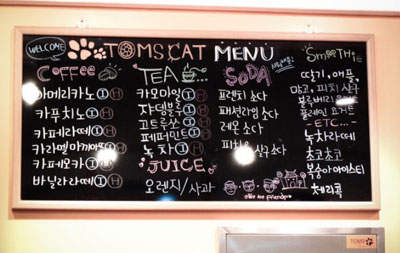 WELCOME TOMS CAT MENU
Coffee
아메리카노 I H
카푸치노 I H
카페라떼 I H
카라멜마끼아또 I H
카페모카 I H
바닐라라떼 I H
TEA
카모마일 I H
쟈뎅블루 I H
루이보스 I H
페퍼민트 I H
녹차 I H
JUICE
오렌지/사과
SODA
프렌치 소다
패션라임 소다
레몬 소다
We are friend
Smoothie
딸기, 애플,
망고, 피치
블루베리
플레인 요거트
ETC...
녹차라떼
초코초코
복숭아아이스티
체리콕
TOMS